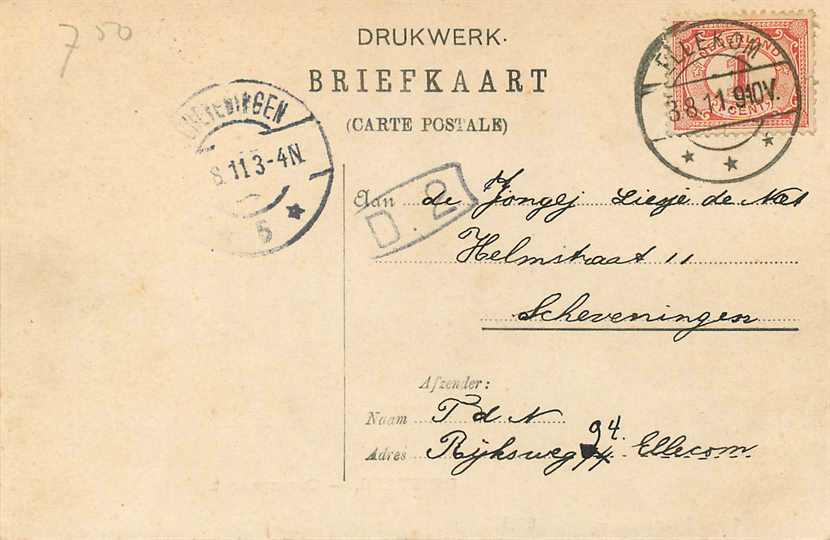 7 50
DRUKWERK.
BRIEFKAART
(CARTE POSTALE)
ELLEKOM
8.11.9-10V.
NEDERLAND
1
CENT
8.11 3-4N.
5
D. 2
Aan de Jongej Liesje de Nes
Helmstraat 11
Scheveningen
Afzender:
Naam T d N
Adres Rijksweg 94. Ellecom